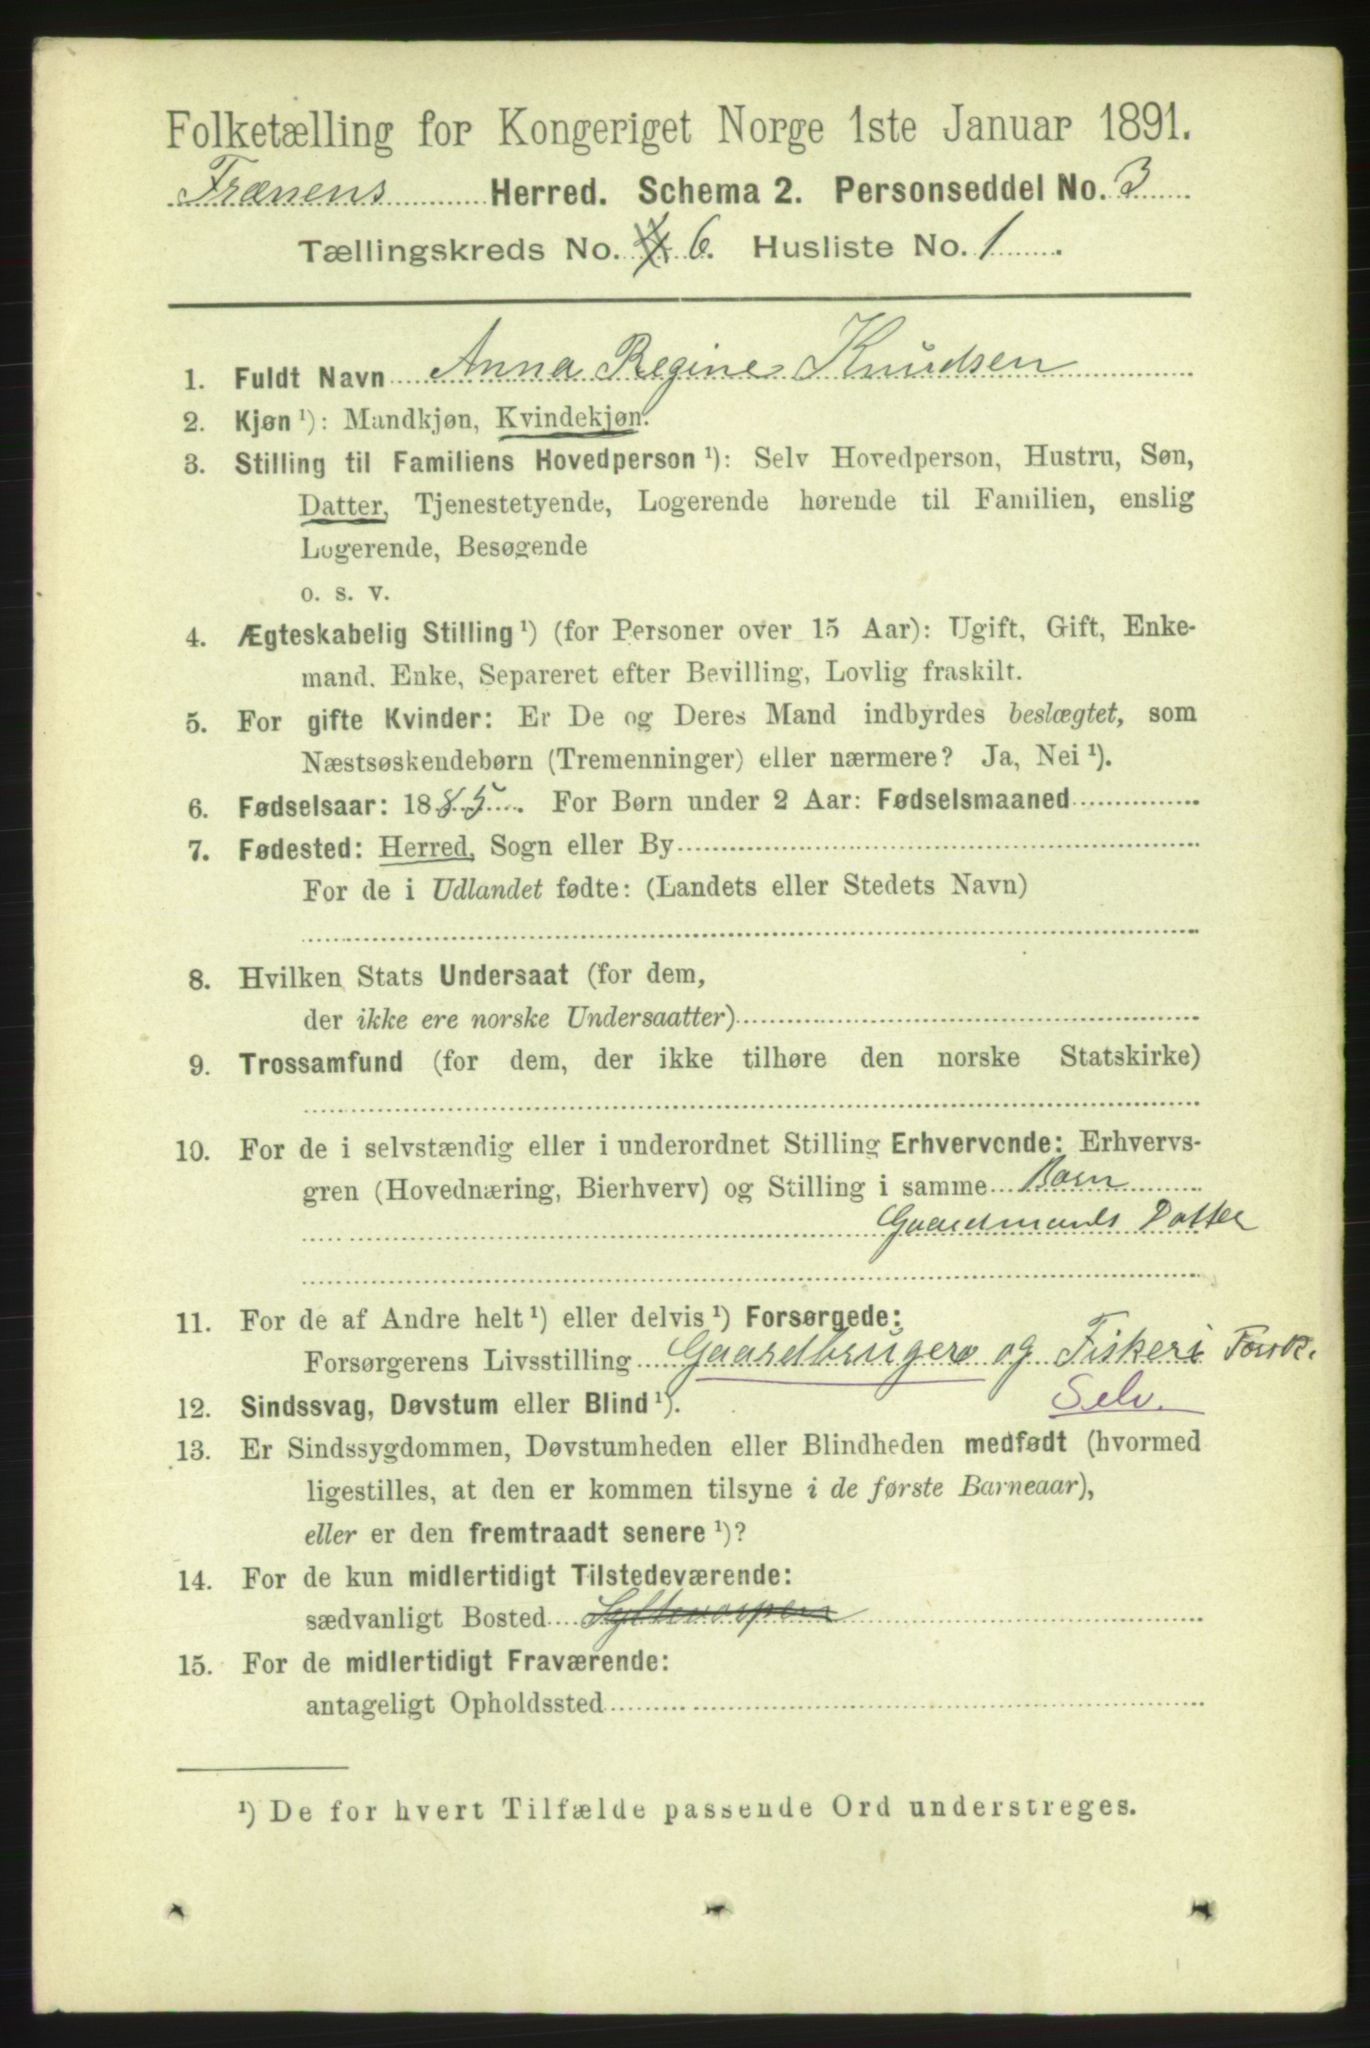 Folketælling for Kongeriget Norge 1ste Januar 1891.
Frænens Herred. Schema 2. Personseddel No. 3
Tællingskreds No. 6. Husliste No. 1.
1. Fuldt Navn Anna Regine Knudsen
2. Kjøn ¹): Mandkjøn, Kvindekjøn.
3. Stilling til Familiens Hovedperson ¹): Selv Hovedperson, Hustru, Søn,
Datter, Tjenestetyende, Logerende hørende til Familien, enslig
Logerende, Besøgende
o. s. v.
4. Ægteskabelig Stilling ¹) (for Personer over 15 Aar): Ugift, Gift, Enke-
mand. Enke, Separeret efter Bevilling, Lovlig fraskilt.
5. For gifte Kvinder: Er De og Deres Mand indbyrdes beslægtet, som
Næstsøskendebørn (Tremenninger) eller nærmere? Ja, Nei ¹).
6. Fødselsaar: 1885. For Børn under 2 Aar: Fødselsmaaned
7. Fødested: Herred, Sogn eller By
For de i Udlandet fødte: (Landets eller Stedets Navn)
8. Hvilken Stats Undersaat (for dem,
der ikke ere norske Undersaatter)
9. Trossamfund (for dem, der ikke tilhøre den norske Statskirke)
10. For de i selvstændig eller i underordnet Stilling Erhvervende: Erhvervs-
gren (Hovednæring, Bierhverv) og Stilling i samme Barn
Gaardmands Datter
11. For de af Andre helt ¹) eller delvis ¹) Forsørgede:
Forsørgerens Livsstilling Gaardbruger og Fiskeri
Selv.
12. Sindssvag, Døvstum eller Blind ¹).
13. Er Sindssygdommen, Døvstumheden eller Blindheden medfødt (hvormed
ligestilles, at den er kommen tilsyne i de første Barneaar),
eller er den fremtraadt senere ¹)?
14. For de kun midlertidigt Tilstedeværende:
sædvanligt Bosted
15. For de midlertidigt Fraværende:
antageligt Opholdssted
¹) De for hvert Tilfælde passende Ord understreges.